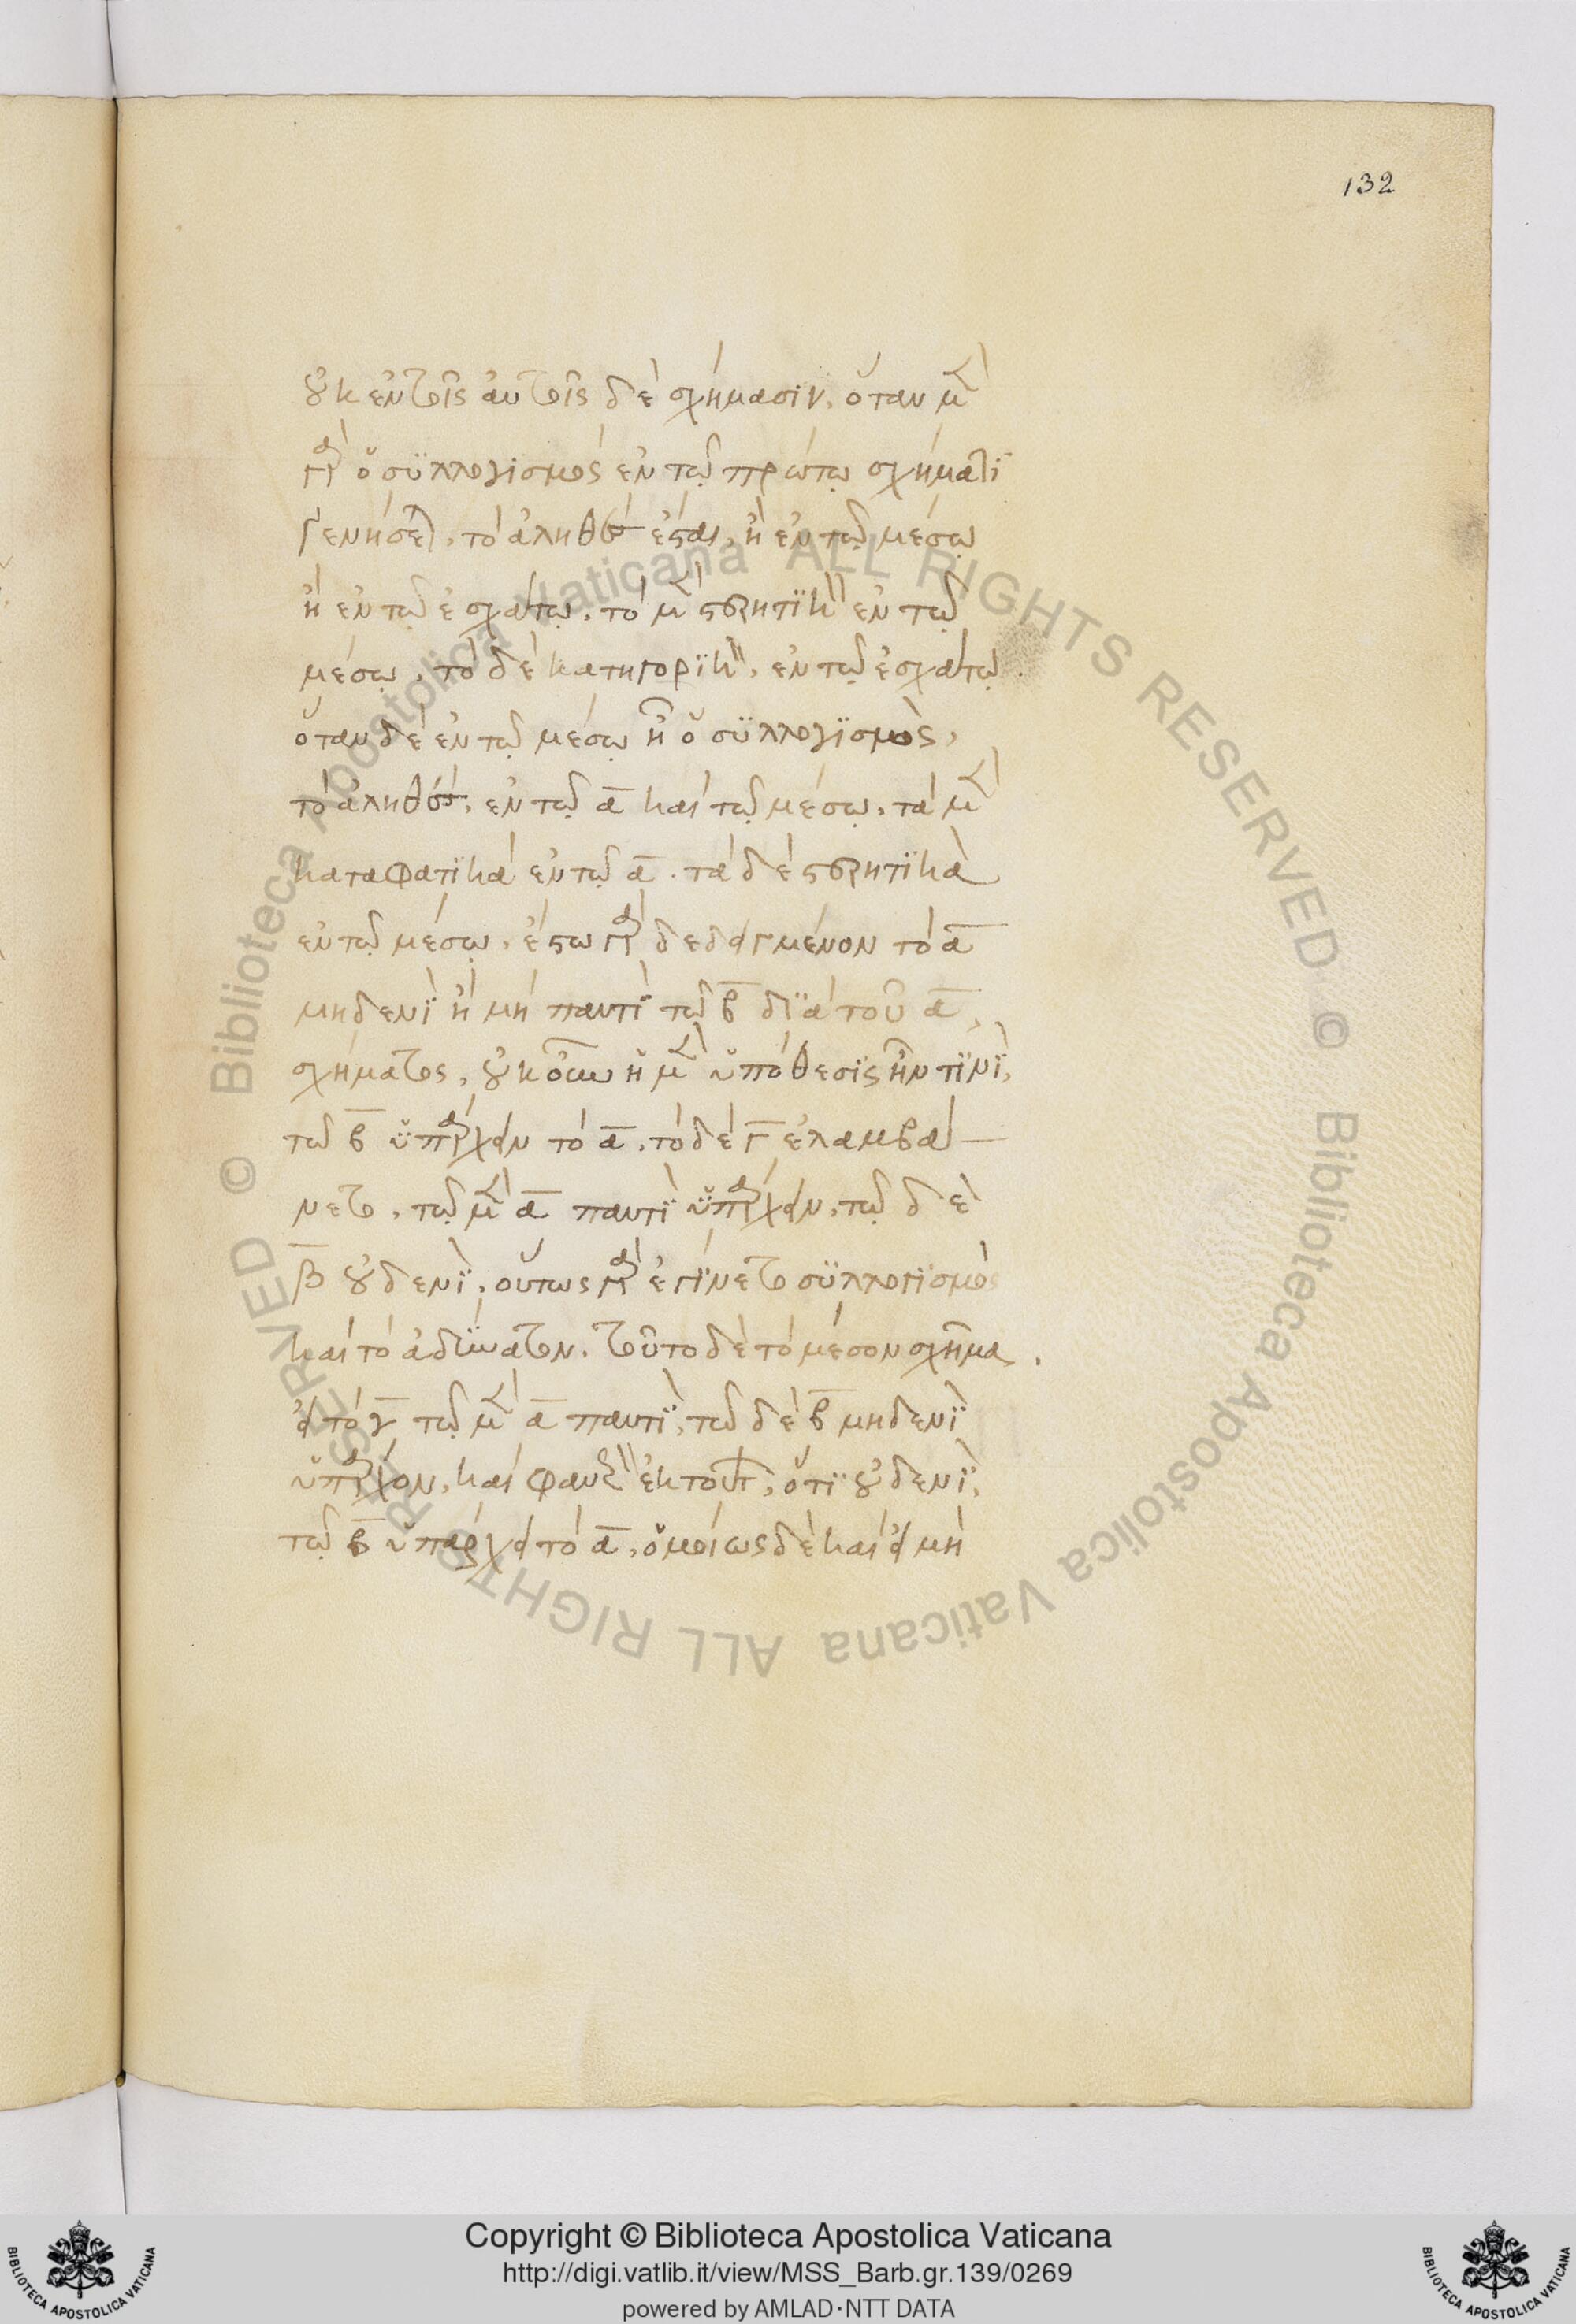 132
οὐκ ἐν τοῖς αὐτοῖς δὲ σχήμασιν. ὅταν μὲν
γὰρ ὁ συλλογισμὸς ἐν τῷ πρώτῳ σχήματι
γένηται, τὸ ἀληθὲς ἔσται, ἢ ἐν τῷ μέσῳ
ἢ ἐν τῷ ἐσχάτῳ. τὸ μὲν στερητικὸν ἐν τῷ
μέσῳ, τὸ δὲ κατηγορικὸν, ἐν τῷ ἐσχάτῳ.
ὅταν δὲ ἐν τῷ μέσῳ ἦ ὁ συλλογϊσμὸς,
τὸ ἀληθὲς, ἐν τῷ α̅ καὶ τῷ μέσῳ. τὰ μὲν
καταφατϊκὰ ἐν τῷ α̅. τὰ δὲ στερητϊκὰ
ἐν τῷ μέσῳ. ἔστω γὰρ δεδειγμένον τὸ α̅
μηδενὶ ἢ μὴ παντὶ τῷ β̅ διὰ τοῦ α̅
σχήματος, οὐκοῦν ἡ μὲν ὑπόθεσις ἦν τϊνὶ
τῷ β̅ ὑπάρχειν τὸ α̅. τὸ δὲ γ̅ ἐλαμβά
νετο, τῷ μὲν α̅ παντὶ ὑπάρχειν, τῷ δὲ
β̅ οὐδενὶ, οὕτως γὰρ ἐγίνετο συλλογϊσμὸς
καὶ τὸ ἀδύνατον. τοῦτο δὲ τὸ μέσον σχῆμα.
εἰ τὸ γ̅ τῷ μὲν α̅ παντὶ, τῷ δὲ β̅ μηδενὶ
ὑπάρχον, καὶ φανερὸν ἐκ τούτων, ὅτι οὐδενὶ
τῷ β̅ ὑπάρχει τὸ α̅. ὁμοίως δὲ καὶ εἰ μὴ
© Biblioteca Apostolica Vaticana ALL RIGHTS RESERVED © Biblioteca Apostolica Vaticana ALL RIGHTS RESERVED
Copyright © Biblioteca Apostolica Vaticana
http://digi.vatlib.it/view/MSS_Barb.gr.139/0269
powered by AMLAD·NTT DATA
BIBLIOTECA APOSTOLICA VATICANA
BIBLIOTECA APOSTOLICA VATICANA